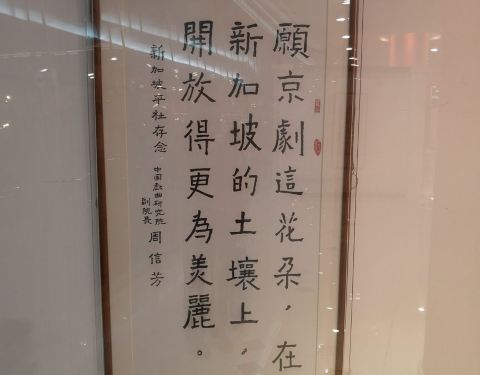 願京劇這花朵，在
新加坡的土壤上，
開放得更為美麗。
新加坡平社存念
中国戲曲研究院
副院長
周信芳